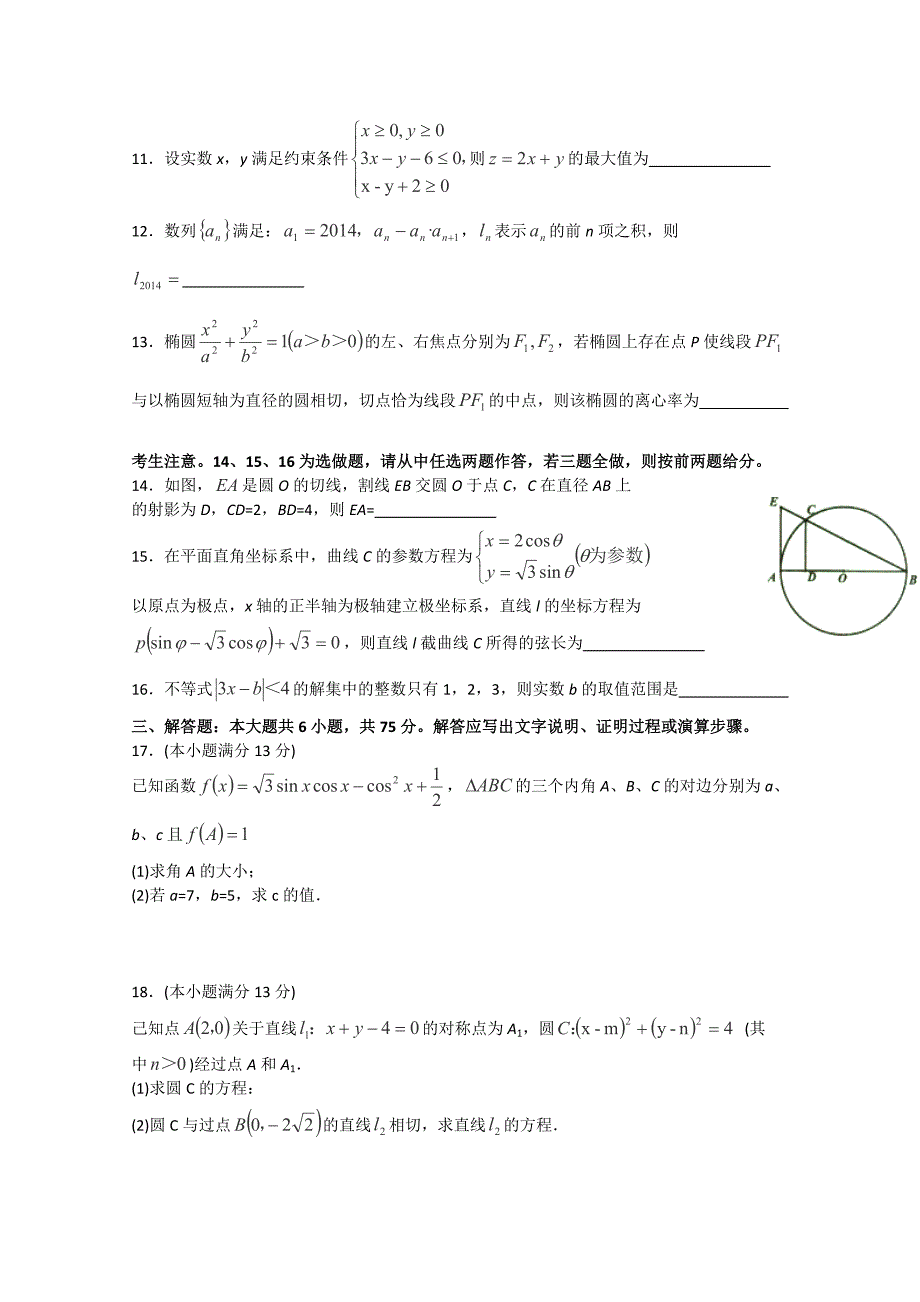 11．设实数 x，y 满足约束条件 { x ≥ 0, y ≥ 0
3x − y − 6 ≤ 0，则 z = 2x + y 的最大值为
x - y + 2 ≥ 0
12．数列 {aₙ} 满足：a₁ = 2014，aₙ − aₙ·aₙ₊₁，lₙ 表示 aₙ 的前 n 项之积，则
l₂₀₁₄ =
13．椭圆 x²/a² + y²/b² = 1(a＞b＞0) 的左、右焦点分别为 F₁, F₂，若椭圆上存在点 P 使线段 PF₁
与以椭圆短轴为直径的圆相切，切点恰为线段 PF₁ 的中点，则该椭圆的离心率为
考生注意。14、15、16 为选做题，请从中任选两题作答，若三题全做，则按前两题给分。
14．如图，EA 是圆 O 的切线，割线 EB 交圆 O 于点 C，C 在直径 AB 上
的射影为 D，CD=2，BD=4，则 EA=
E
C
A
D
O
B
15．在平面直角坐标系中，曲线 C 的参数方程为 { x = 2cosθ
y = √3 sinθ (θ为参数)
以原点为极点，x 轴的正半轴为极轴建立极坐标系，直线 l 的坐标方程为
p(sinφ − √3 cosφ) + √3 = 0，则直线 l 截曲线 C 所得的弦长为
16．不等式 |3x − b|＜4 的解集中的整数只有 1，2，3，则实数 b 的取值范围是
三、解答题：本大题共 6 小题，共 75 分。解答应写出文字说明、证明过程或演算步骤。
17．(本小题满分 13 分)
已知函数 f(x) = √3 sin x cos x − cos² x + 1/2，ΔABC 的三个内角 A、B、C 的对边分别为 a、
b、c 且 f(A) = 1
(1)求角 A 的大小；
(2)若 a=7，b=5，求 c 的值．
18．(本小题满分 13 分)
己知点 A(2,0) 关于直线 l₁：x + y − 4 = 0 的对称点为 A₁，圆 C:(x - m)² + (y - n)² = 4 (其
中 n＞0)经过点 A 和 A₁．
(1)求圆 C 的方程：
(2)圆 C 与过点 B(0，− 2√2) 的直线 l₂ 相切，求直线 l₂ 的方程．